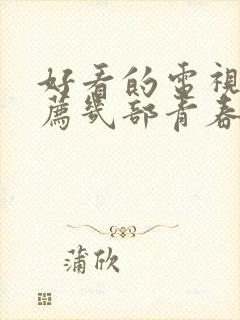 好看的電視
薦幾部青春
蒲欣